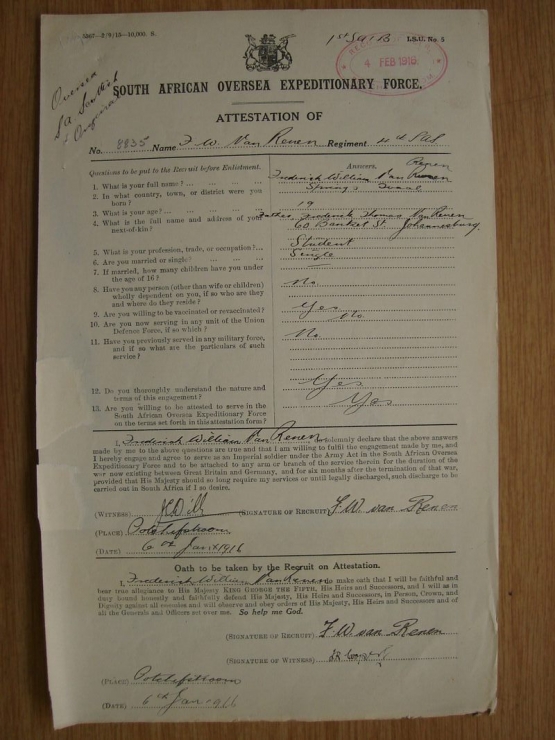 5567—2/9/15—10,000. S.
1st SAIB
I.S.U. No. 5
4 FEB 1916
Oversea
SA Scottish
Original
SOUTH AFRICAN OVERSEA EXPEDITIONARY FORCE.
ATTESTATION OF
No. 8835 Name F W Van Renen Regiment 4th SAI
Questions to be put to the Recruit before Enlistment.
Answers.
Renen
1. What is your full name? ... Frederick William Van
2. In what country, town, or district were you born? Springs
3. What is your age? ... 19
4. What is the full name and address of your next-of-kin? Father Frederick Thomas Van Renen
60 Banket St. Johannesburg
5. What is your profession, trade, or occupation?... Student
6. Are you married or single? ... Single
7. If married, how many children have you under the age of 16?
8. Have you any person (other than wife or children) wholly dependent on you, if so who are they and where do they reside? No
9. Are you willing to be vaccinated or revaccinated? Yes
10. Are you now serving in any unit of the Union Defence Force, if so which? No
11. Have you previously served in any military force, and if so what are the particulars of such service? No
12. Do you thoroughly understand the nature and terms of this engagement? Yes
13. Are you willing to be attested to serve in the South African Oversea Expeditionary Force on the terms set forth in this attestation form? Yes
I, Frederick William Van Renen solemnly declare that the above answers
made by me to the above questions are true and that I am willing to fulfil the engagement made by me, and
I hereby engage and agree to serve as an Imperial soldier under the Army Act in the South African Oversea
Expeditionary Force and to be attached to any arm or branch of the service therein for the duration of the
war now existing between Great Britain and Germany, and for six months after the termination of that war,
provided that His Majesty should so long require my services or until legally discharged, such discharge to be
carried out in South Africa if I so desire.
(WITNESS) (SIGNATURE OF RECRUIT) F. W. van Renen
(PLACE) Potchefstroom
(DATE) 6th Jan 1916
Oath to be taken by the Recruit on Attestation.
I, Frederick William Van Renen do make oath that I will be faithful and
bear true allegiance to His Majesty KING GEORGE THE FIFTH, His Heirs and Successors, and I will as in
duty bound honestly and faithfully defend His Majesty, His Heirs and Successors, in Person, Crown, and
Dignity against all enemies and will observe and obey orders of His Majesty, His Heirs and Successors and of
all the Generals and Officers set over me. So help me God.
(SIGNATURE OF RECRUIT) F. W. van Renen
(SIGNATURE OF WITNESS)
(PLACE) Potchefstroom
(DATE) 6th Jan 1916